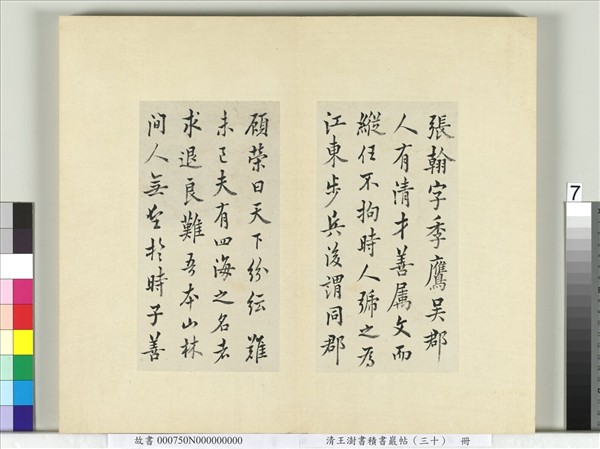 張翰字季鷹吳郡
人有清才善屬文而
縱任不拘時人號之為
江東步兵後謂同郡
顧榮曰天下紛紜難
未已夫有四海之名者
求退良難吾本山林
間人無望於時子善
7
故書 000750N000000000
清王澍書積書巖帖（三十） 冊